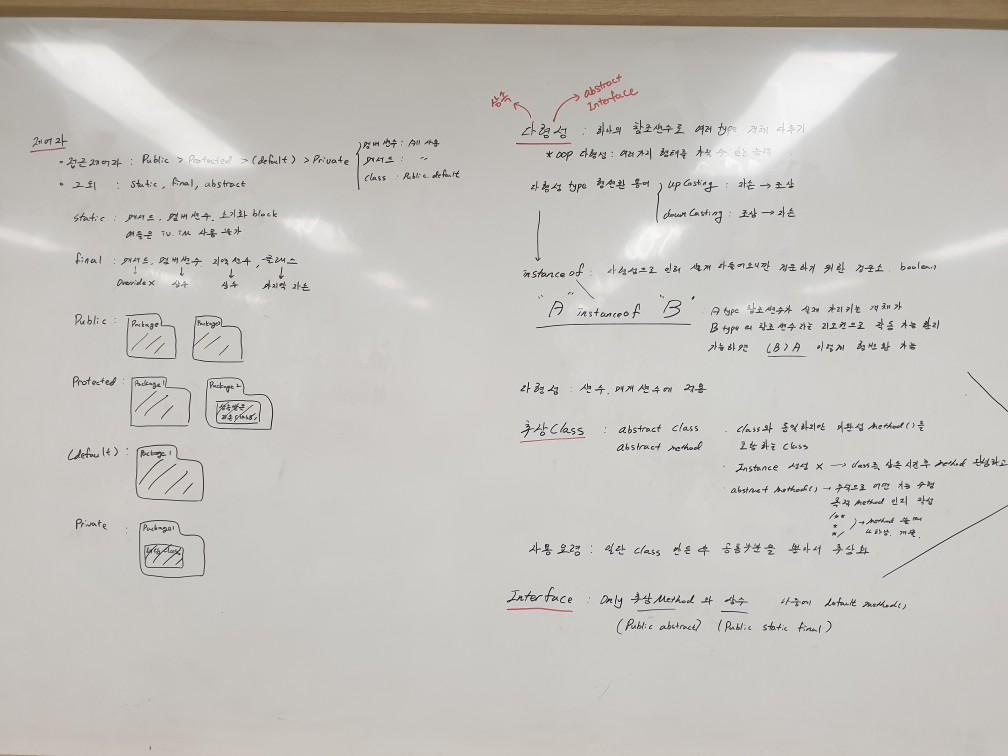 제어자
• 접근제어자 : Public > Protected > (defult) > Private
멤버 변수 : All 사용
메서드 : "
class : Public. default
• 그외 : static, final, abstract
static : 메서드, 멤버변수, 초기화 block
iv. im 사용 불가
final : 메서드, 멤버변수, 지역변수, 클래스
Override X 상수 상수 마지막 자손
Public :
Package
Package
Protected :
Package 1
Package 2
상속받은
자손 class
(default) :
Package 1
Private :
Package 1
class
상속
abstract
Interface
다형성 : 하나의 참조변수로 여러 type 객체 다루기
* OOP 다형성 : 여러가지 형태를 가질 수 있는 능력
다형성 type 형변환 용어
up Casting : 자손 → 조상
down Casting : 조상 → 자손
instance of : 다형성으로 인해 검문하기 위한 검문소. boolean
"A" instance of "B"
A type 참조변수가 실제 가리키는 객체가
B type의 참조변수라는 리모컨으로 작동 가능
가능하면 (B) A 이렇게 형변환 가능
다형성 : 변수, 매개변수에 적용
추상 Class : abstract class
abstract method
• class와 동일하지만 미완성 Method()를
포함하는 class
• Instance 생성 X → class로 상속 시킨후 Method 완성하고
abstract Method() → 주석으로 어떤 기능 수행
목적 Method 인지 작성
/**
*
*/
→ Method
사용 요령 : 일단 class 만든 후 공통부분을 뽑아서 추상화
Interface : Only 추상Method 와 상수 나중에 default method()
(Public abstract) (Public static final)